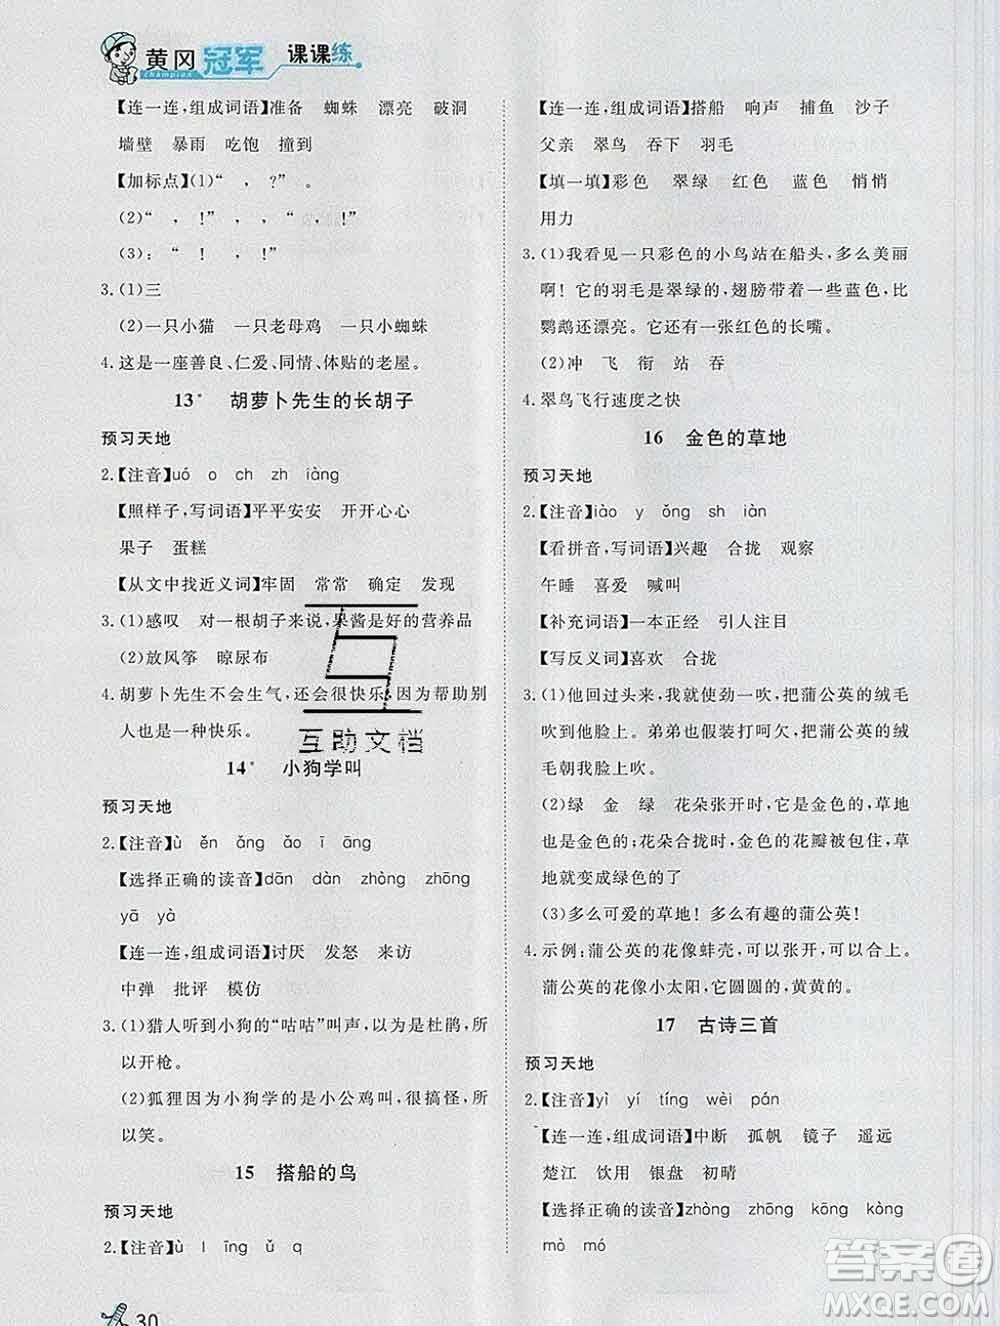 黄冈冠军课课练
champion
【连一连,组成词语】准备 蜘蛛 漂亮 破洞
墙壁 暴雨 吃饱 撞到
【加标点】(1)“ , ?” 。
(2)“ , !” , !”
(3):“ , !”
3.(1)三
(2)一只小猫 一只老母鸡 小蜘蛛
4.这是一座善良、仁爱、同情、体贴的老屋。
13* 胡萝卜先生的长胡子
预习天地
2.【注音】uó o ch zh iàng
【照样子,写词语】平平安安 开开心心
果子 蛋糕
【从文中找近义词】牢固 常常 确定 发现
3.(1)感叹 对一根胡子来说,果酱是好的营养品
(2)放风筝 晾尿布
4.胡萝卜先生不会生气,还会很快乐,因为帮助别
人也是一种快乐。
互助文档
14* 小狗学叫
预习天地
2.【注音】ù ěn ǎng ǎo ī āng
【选择正确的读音】dān dàn zhòng zhōng
yā yà
【连一连,组成词语】讨厌 发怒 来访
中弹 批评 模仿
3.(1)猎人听到小狗的“咕咕”叫声,以为是杜鹃,所
以开枪。
(2)狐狸因为小狗学的是小公鸡叫,很搞怪,所
以笑。
15 搭船的鸟
预习天地
2.【注音】ù l īng ǔ q
30
【连一连,组成词语】搭船 响声 捕鱼 沙子
父亲 翠鸟 吞下 羽毛
【填一填】彩色 翠绿 红色 蓝色 悄悄
用力
3.(1)我看见一只彩色的小鸟站在船头,多么美丽
啊!它的羽毛是翠绿的,翅膀带着一些蓝色,比
鹦鹉还漂亮。它还有一张红色的长嘴。
(2)冲 飞 衔 站 吞
4.翠鸟飞行速度之快
16 金色的草地
预习天地
2.【注音】iào y ǒng sh iàn
【看拼音,写词语】兴趣 合拢 观察
午睡 喜爱 喊叫
【补充词语】一本正经 引人注目
【写反义词】喜欢 合拢
3.(1)他回过头来,我就使劲一吹,把蒲公英的绒毛
吹到他的脸上。弟弟也假装打呵欠,把蒲公英的绒
毛朝我脸上吹。
(2)绿 金 绿 花朵张开时,它是金色的,草地
也是金色的;花朵合拢时,金色的花瓣被包住,草地
就变成绿色的了
(3)多么可爱的草地!多么有趣的蒲公英!
4.示例:蒲公英的花像蚌壳,可以张开,可以合上。
蒲公英的花像小太阳,它圆圆的,黄黄的。
17 古诗三首
预习天地
2.【注音】yì yí tíng wèi pán
【连一连,组成词语】中断 孤帆 镜子 遥远
楚江 饮用 银盘 初晴
【选择正确的读音】zhòng zhōng kōng kòng
mò mó
答案圈
MXQE.COM